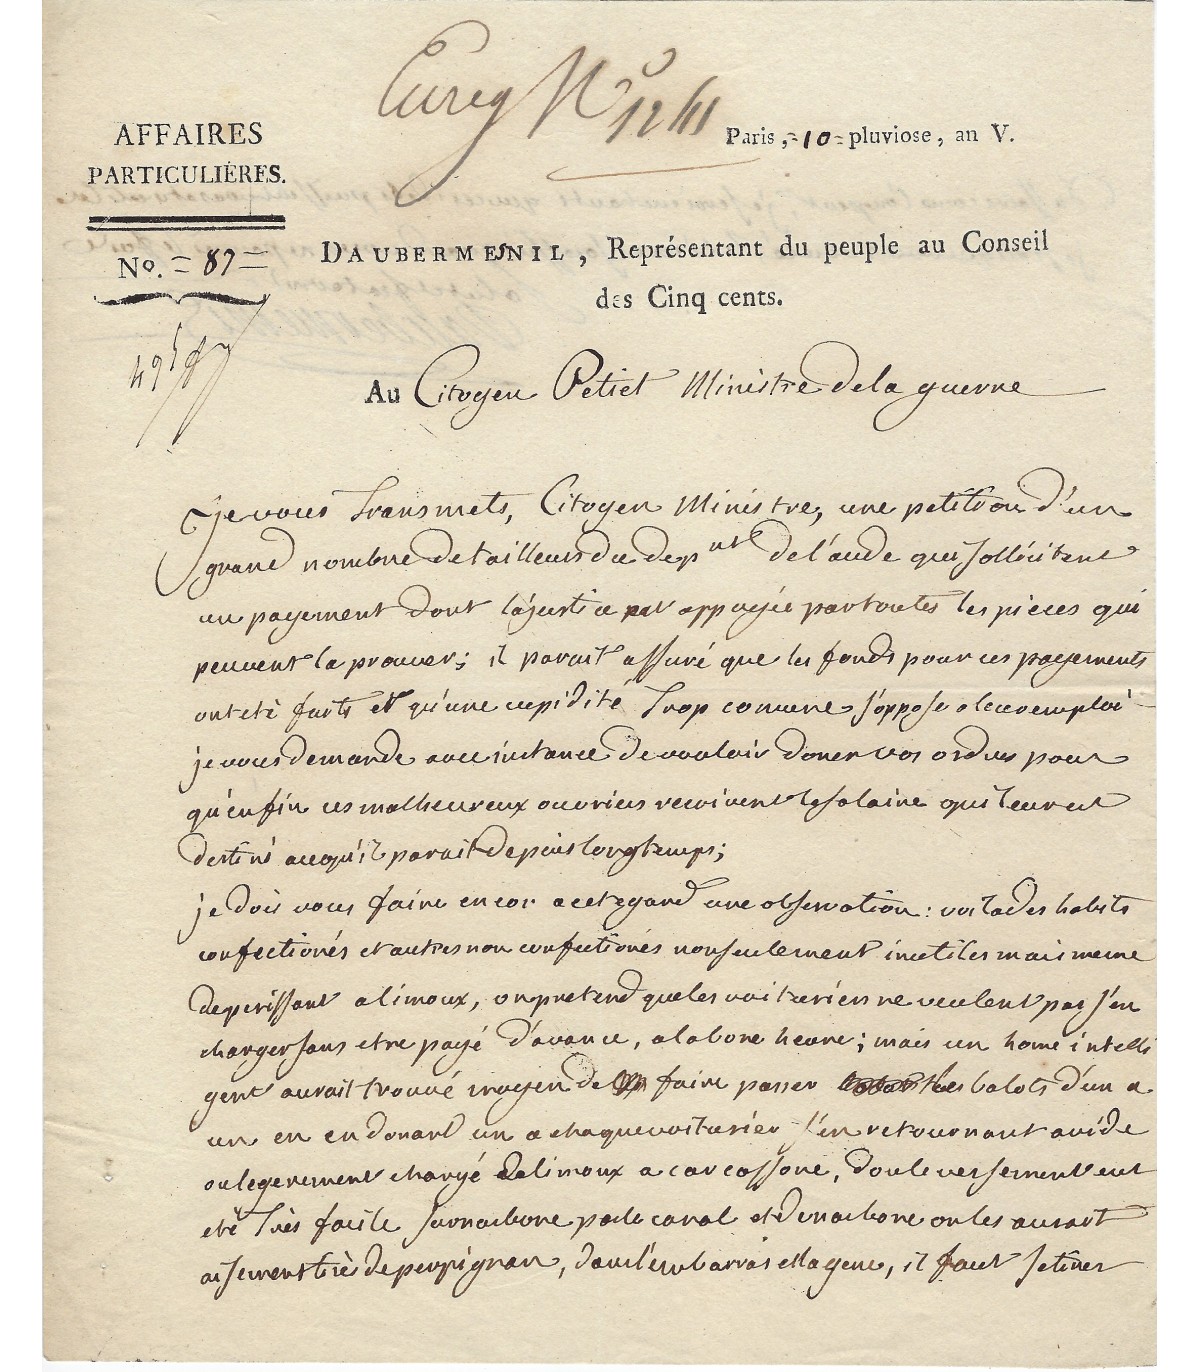 Enreg N° 1241
AFFAIRES
PARTICULIÈRES.
Paris, = 10 = pluviose, an V.
No. = 87 =
DAUBERMESNIL, Représentant du peuple au Conseil
des Cinq cents.
Au Citoyen Petiet Ministre de la guerre
je vous transmets, Citoyen Ministre, une petition d'un
grand nombre de tailleurs du depnt de l'aude qui sollicitent
un payement dont la justice est appuyée par toutes les pièces qui
peuvent la prouver; il parait assuré que les fonds pour ces payements
ont eté faits et qu'une cupidité trop comune s'oppose a leur emploi
je vous demande avec instance de vouloir doner vos ordres pour
qu'enfin ces malheureux ouvriers recoivent le salaire qui leur est
destiné a ce qu'il parait depuis longtemps;
je dois vous faire encor a cet egard une observation: voila des habits
confectionés et autres non confectionés non seulement inutiles mais meme
deperissant a limoux, on pretend que les voituriers ne veulent pas s'en
charger sans etre payé d'avance, a la bone heure; mais un home intelli
gent aurait trouvé moyen de faire passer les balots d'un a
un en en donant un a chaque voiturier s'en retournant a vide
ou legerement chargé de limoux a carcassone, dou le versement eut
eté très facile sur narbone par le canal et de narbone on les aurait
aisement tirés de perpignan, dans l'embarras et la gene, il faut se tirer